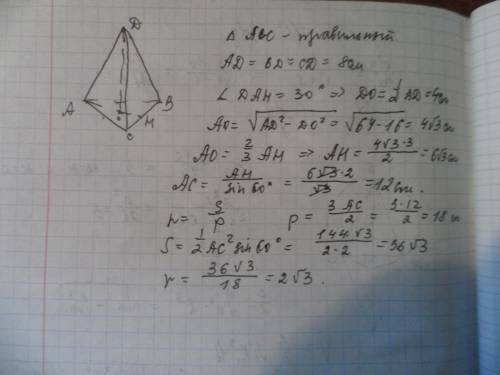 D
A
B
C
H
Δ ABC - правильный.
AD = BD = CD = 8см
∠ DAH = 30° => DO = 1/2 AD = 4см
AO = √(AD² - DO²) = √(64 - 16) = 4√3 см
AO = 2/3 AH => AH = (4√3·3)/2 = 6√3 см
AC = AH/sin 60° = (6√3·2)/√3 = 12см.
r = S/p p = 3AC/2 = 3·12/2 = 18 см
S = 1/2 AC² sin 60° = 144√3/(2·2) = 36√3
r = 36√3/18 = 2√3.